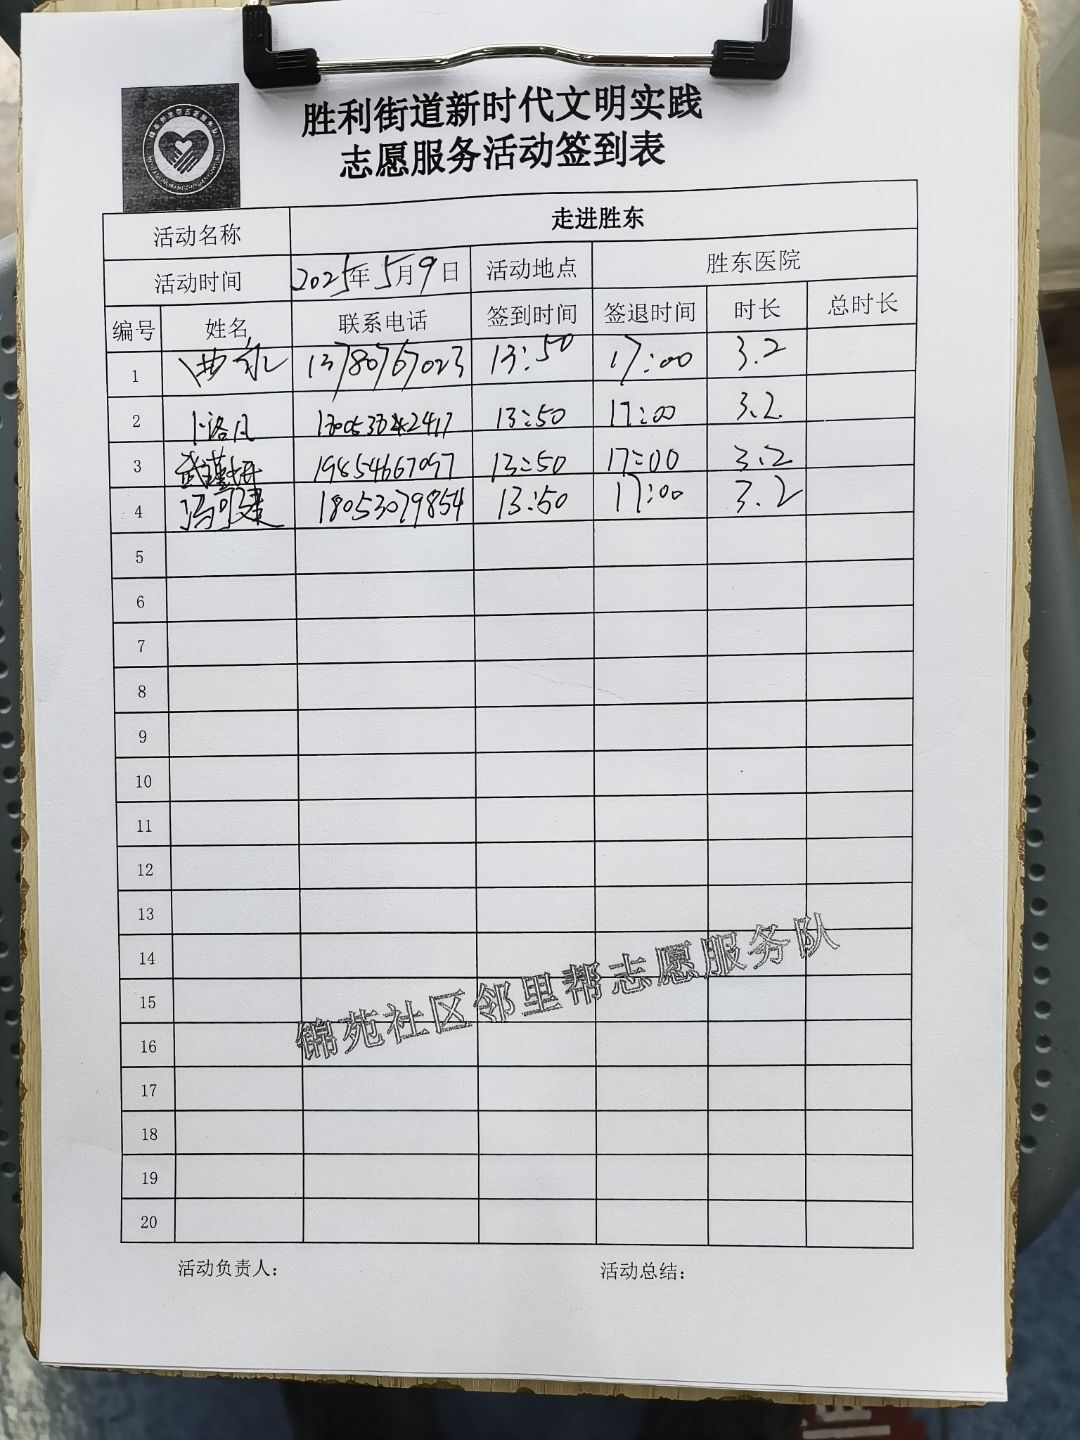 胜利街道新时代文明实践
志愿服务活动签到表
活动名称 走进胜东
活动时间 2025年5月9日 活动地点 胜东医院
编号 姓名 联系电话 签到时间 签退时间 时长 总时长
1 13780767023 13:50 17:00 3.2
2 卜洛凡 13:50 17:00 3.2
3 武瑾妍 19854667097 13:50 17:00 3.2
4 冯可建 18053079854 13:50 17:00 3.2
5
6
7
8
9
10
11
12
13
14
15
16
17
18
19
20
锦苑社区邻里帮志愿服务队
活动负责人: 活动总结: